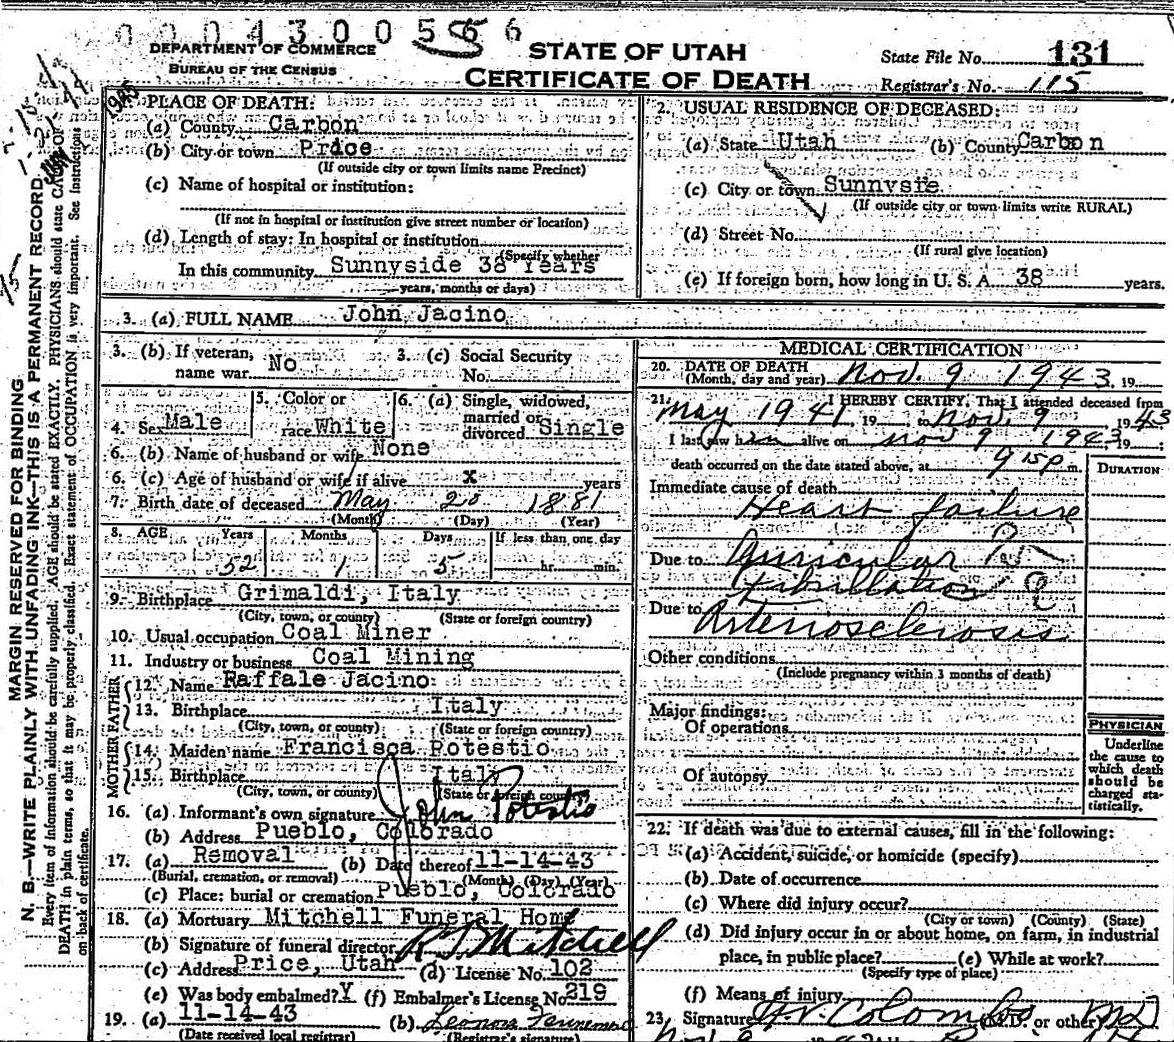 0004300566
DEPARTMENT OF COMMERCE
BUREAU OF THE CENSUS
STATE OF UTAH
CERTIFICATE OF DEATH
State File No. 131
Registrar's No. 115
MARGIN RESERVED FOR BINDING
N. B.—WRITE PLAINLY WITH UNFADING INK—THIS IS A PERMANENT RECORD.
Every item of information should be carefully supplied. AGE should be stated EXACTLY. PHYSICIANS should state CAUSE OF
DEATH in plain terms, so that it may be properly classified. Exact statement of OCCUPATION is very important. See Instructions
on back of certificate.
1. PLACE OF DEATH:
(a) County Carbon
(b) City or town Price
(If outside city or town limits name Precinct)
(c) Name of hospital or institution:
(If not in hospital or institution give street number or location)
(d) Length of stay: In hospital or institution
(Specify whether
In this community Sunnyside 38 Years
years, months or days)
2. USUAL RESIDENCE OF DECEASED:
(a) State Utah (b) County Carbon
(c) City or town Sunnysie
(If outside city or town limits write RURAL)
(d) Street No.
(If rural give location)
(e) If foreign born, how long in U. S. A. 38 years.
3. (a) FULL NAME John Jacino
3. (b) If veteran, name war No
3. (c) Social Security No.
4. Sex Male
5. Color or race White
6. (a) Single, widowed, married or divorced Single
6. (b) Name of husband or wife None
6. (c) Age of husband or wife if alive X years
7. Birth date of deceased May 20 1881
(Month) (Day) (Year)
8. AGE Years Months Days If less than one day
52 1 5 hr. min.
9. Birthplace Grimaldi, Italy
(City, town, or county) (State or foreign country)
10. Usual occupation Coal Miner
11. Industry or business Coal Mining
FATHER
12. Name Raffale Jacino
13. Birthplace Italy
(City, town, or county) (State or foreign country)
MOTHER
14. Maiden name Francisca Potestio
15. Birthplace Italy
(City, town, or county) (State or foreign country)
16. (a) Informant's own signature John Potestio
(b) Address Pueblo, Colorado
17. (a) Removal (b) Date thereof 11-14-43
(Burial, cremation, or removal) (Month) (Day) (Year)
(c) Place: burial or cremation Pueblo, Colorado
18. (a) Mortuary Mitchell Funeral Home
(b) Signature of funeral director R J Mitchell
(c) Address Price, Utah (d) License No. 102
(e) Was body embalmed? Y (f) Embalmer's License No. 219
19. (a) 11-14-43 (b) Leonora
(Date received local registrar) (Registrar's signature)
MEDICAL CERTIFICATION
20. DATE OF DEATH
(Month, day and year) Nov. 9 1943, 19
21. I HEREBY CERTIFY, That I attended deceased from
May 1941, 19 to Nov. 9 1943
I last saw him alive on Nov 9 1943 19
death occurred on the date stated above, at 9 15 p m.
DURATION
Immediate cause of death
Heart failure
Due to Auricular
Fibrillation
Due to Arteriosclerosis
Other conditions
(Include pregnancy within 3 months of death)
Major findings:
Of operations
Of autopsy
PHYSICIAN
Underline
the cause to
which death
should be
charged sta-
tistically.
22. If death was due to external causes, fill in the following:
(a) Accident, suicide, or homicide (specify)
(b) Date of occurrence
(c) Where did injury occur?
(City or town) (County) (State)
(d) Did injury occur in or about home, on farm, in industrial
place, in public place? (e) While at work?
(Specify type of place)
(f) Means of injury
23. Signature Colombo (M.D. or other) MD